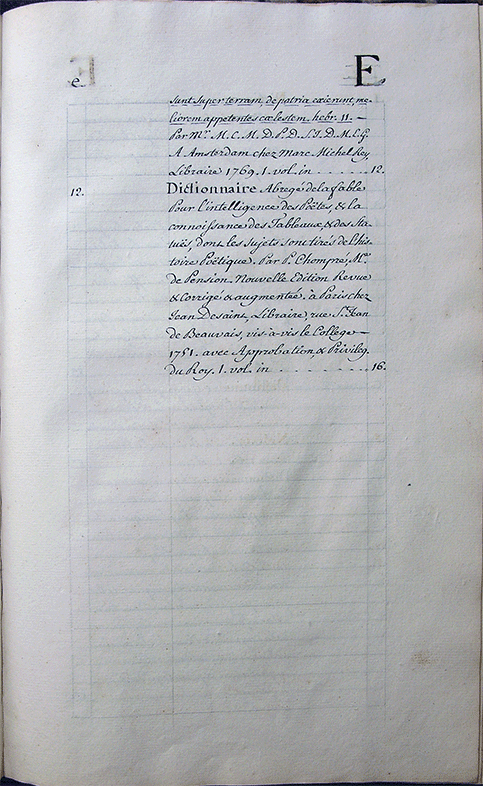 e E
sunt super terram, de patria exierunt, me-
liorem appetentes cælestem. hebr. 11. —
Par Mr. M. C. M. D. P. D. S. J. D. M. L. G.
A Amsterdam chez Marc Michel Rey,
Libraire 1769. 1. vol. in . . . . . . 12.
12. Dictionnaire Abregé de la fable
Pour l'intelligence des Poëtes, & la
connoissance des Tableaux, & des Sta-
tuës, dont les Sujets sont tirés de l'his-
toire Poëtique. Par P. Chompré, Me.
de Pension. Nouvelle Edition Revue
& Corrigé & augmentée. à Paris chez
Jean Desaint, Libraire, rue St. Jean
de Beauvais, vis-à-vis le Collège —
1751. avec Approbation, & Privileg.
du Roy. 1. vol. in . . . . . . . . . 16.